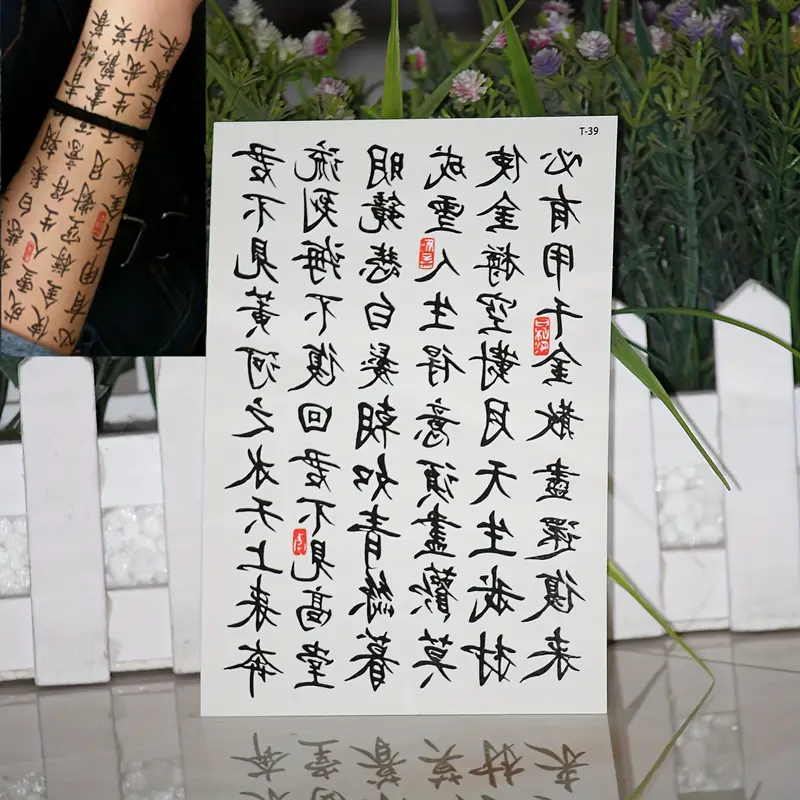 T-39
君不見黃河之水天上来奔
流到海不復回君不見高堂
明鏡悲白髮朝如青絲暮
成雪人生得意須盡歡莫
使金樽空對月天生我材
必有用千金散盡還復来